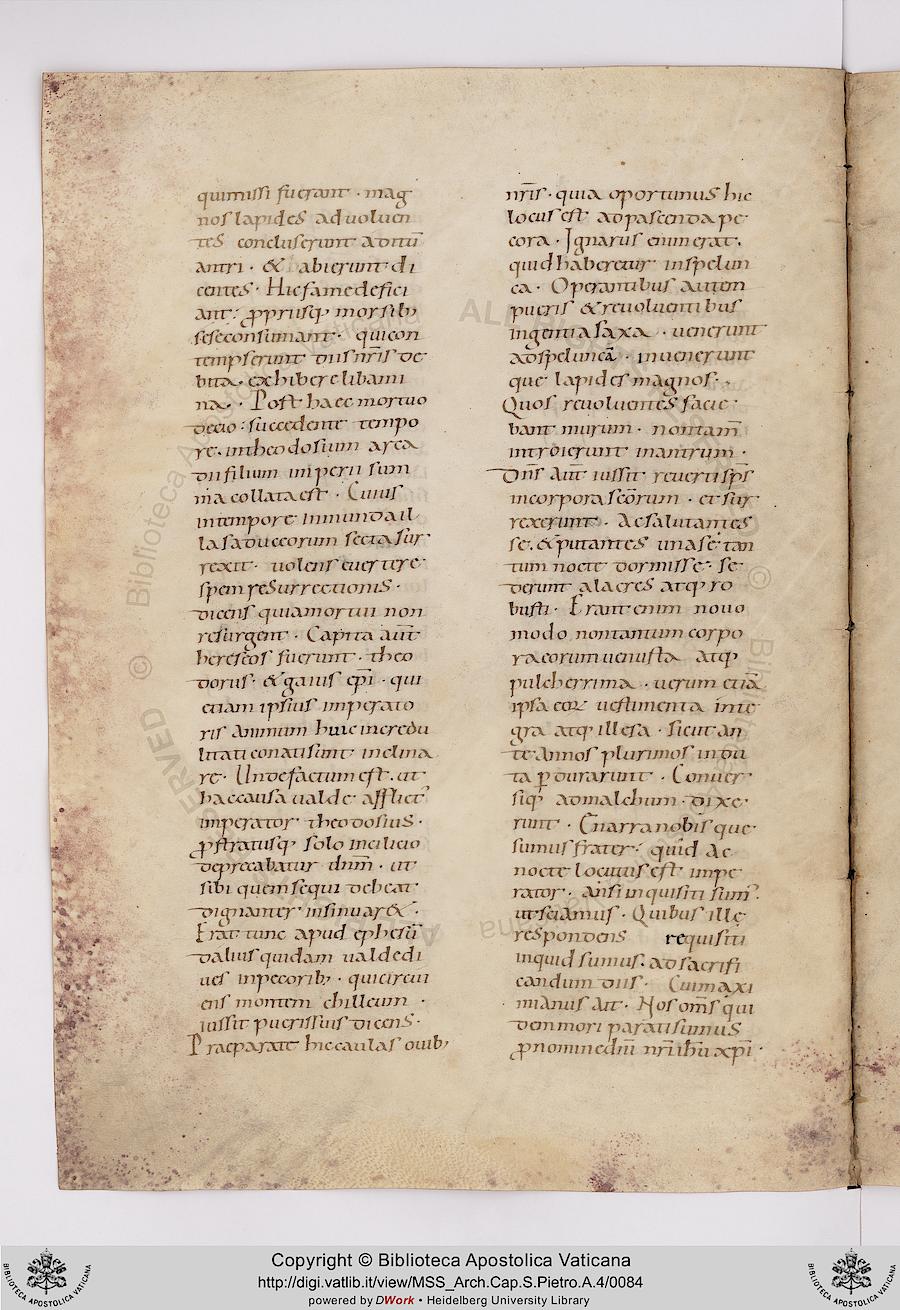 quimissi fuerant · mag
nos lapides advoluen
tes concluserunt aditū
antri · & abierunt di
centes · Hic fame defici
ant : ꝓpriisq; morsib;
sese consumant · qui con
tempserunt diis nr̄is de
bita · exhibere libami
na · Post haec mortuo
decio : succedente tempo
re · in theodosium arca
dii filium imperii sum
ma collata est · Cuius
in tempore inmunda il
la saduceorum secta sur
rexit · volens evertere
spem resurrectionis ·
dicens quia mortui non
resurgent · Capita aūt
hereseos fuerunt · theo
dorus · & gaius ep̄i · qui
etiam ipsius imperato
ris animum huic incredu
litati conati sunt inclina
re · Unde factum est · ut
hac causa valde afflict'
imperator theodosius ·
ꝓstratusq; solo in cilicio
deprecabatur dn̄m · ut
sibi quem sequi debeat
dignanter insinuar& ·
Erat tunc apud ephesū
dalius quidam valde di
ves in pecorib; · qui circui
ens montem chilleum ·
iussit pueris suis dicens ·
Praeparate hic caulas ovib;
nr̄is · quia oportunus hic
locus est ad pascenda pe
cora · Ignarus enim erat ·
quid haberetur in spelun
ca · Operantibus autem
pueris & revolventibus
ingentia saxa · venerunt
ad speluncā · invenerunt
que lapides magnos ·
Quos revolventes facie
bant murum · non tam̄
introierunt in antrum ·
Dn̄s aūt iussit reverti sp̄s
in corpora sc̄orum · et sur
rexerunt · Ac salutantes
se · & putantes una se tan
tum nocte dormisse · se
derunt alacres atq; ro
busti · Erant enim novo
modo non tantum corpo
ra eorum venusta atq;
pulcherrima · verum etiā
ipsa eoꝝ vestimenta inte
gra atq; illesa · sicut an
te annos plurimos indu
ta ꝑdurarunt · Conver
siq; ad malchum · dixe
runt · Enarra nobis que
sumus frater · quid ac
nocte locutus est impe
rator · an si inquisiti sum' ·
ut sciamus · Quibus ille
respondens requisiti
inquid sumus · ad sacrifi
candum diis · Cui maxi
mianus ait · Nos om̄s qui
dem mori parati sumus
ꝓ nomine dn̄i nr̄i ih̄u xp̄i ·
© Biblioteca Apostolica Vaticana
Copyright © Biblioteca Apostolica Vaticana
http://digi.vatlib.it/view/MSS_Arch.Cap.S.Pietro.A.4/0084
powered by DWork • Heidelberg University Library